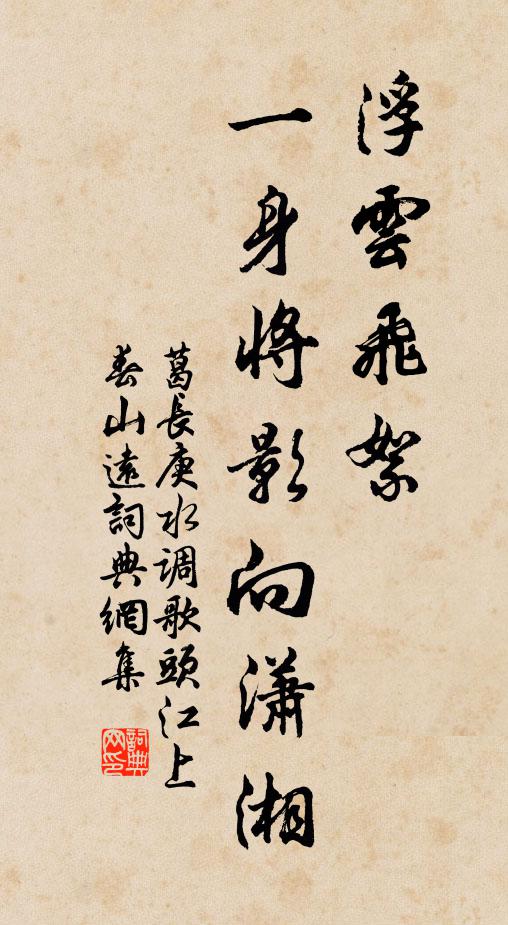 浮雲飛絮
一身將影向瀟湘
葛長庚水調歌頭江上
春山遠詞典網集
詞典
网印